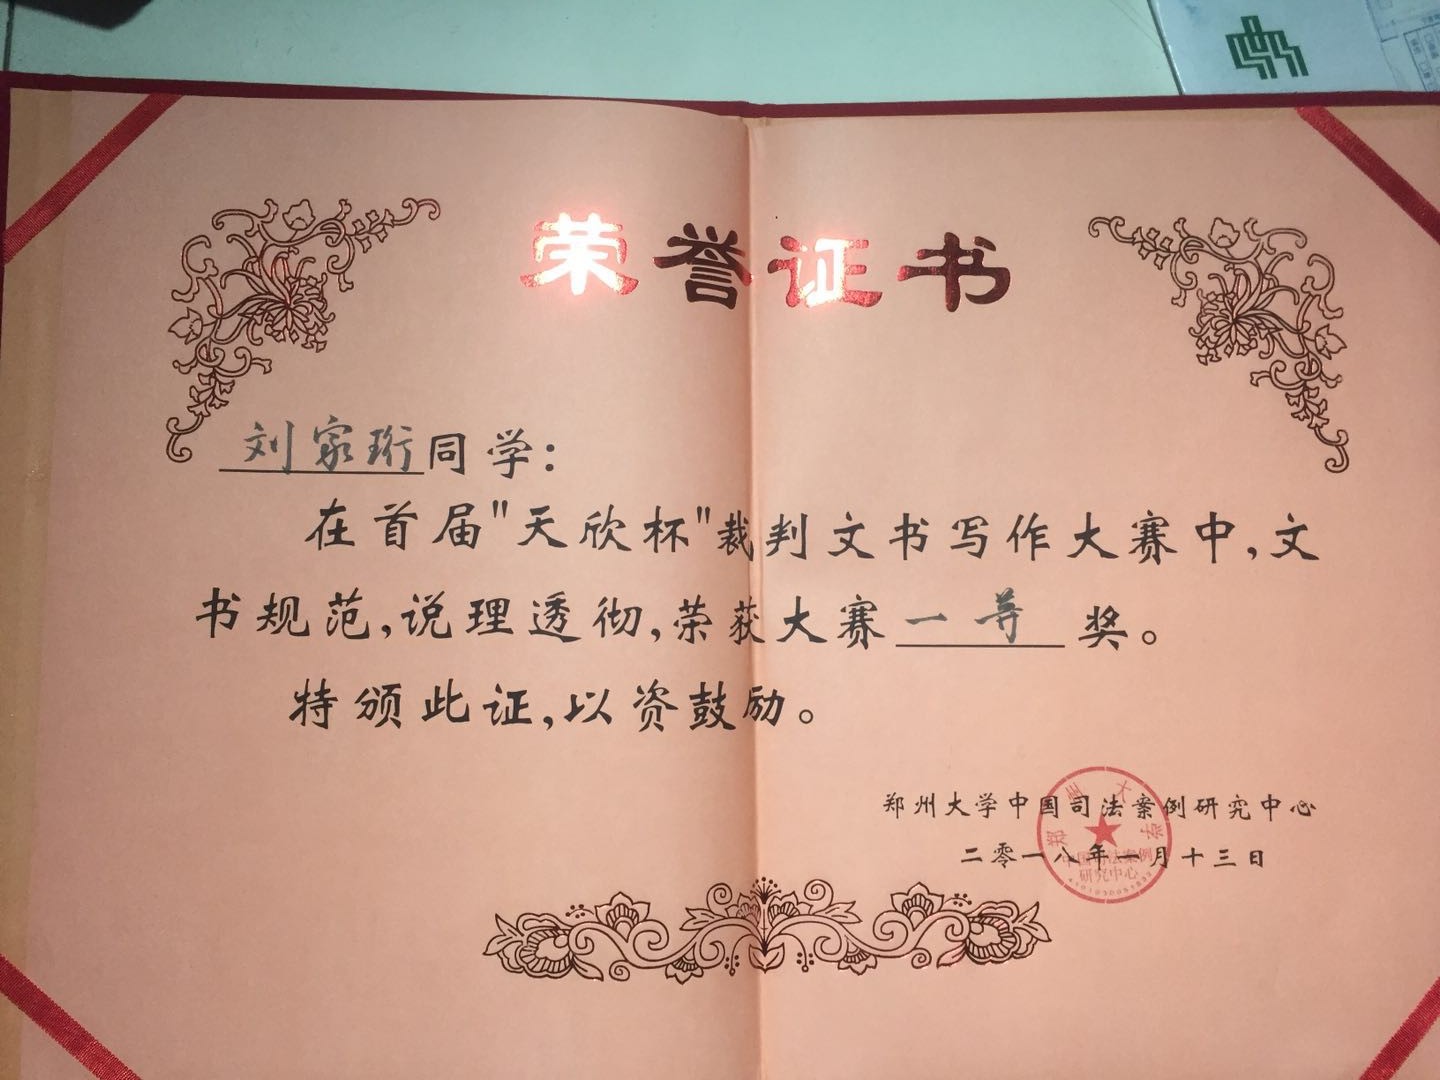 荣誉证书
刘家珩同学：
在首届"天欣杯"裁判文书写作大赛中,文
书规范,说理透彻,荣获大赛一等奖。
特颁此证,以资鼓励。
郑州大学中国司法案例研究中心
二零一八年一月十三日
郑州大学
中国司法案例
研究中心